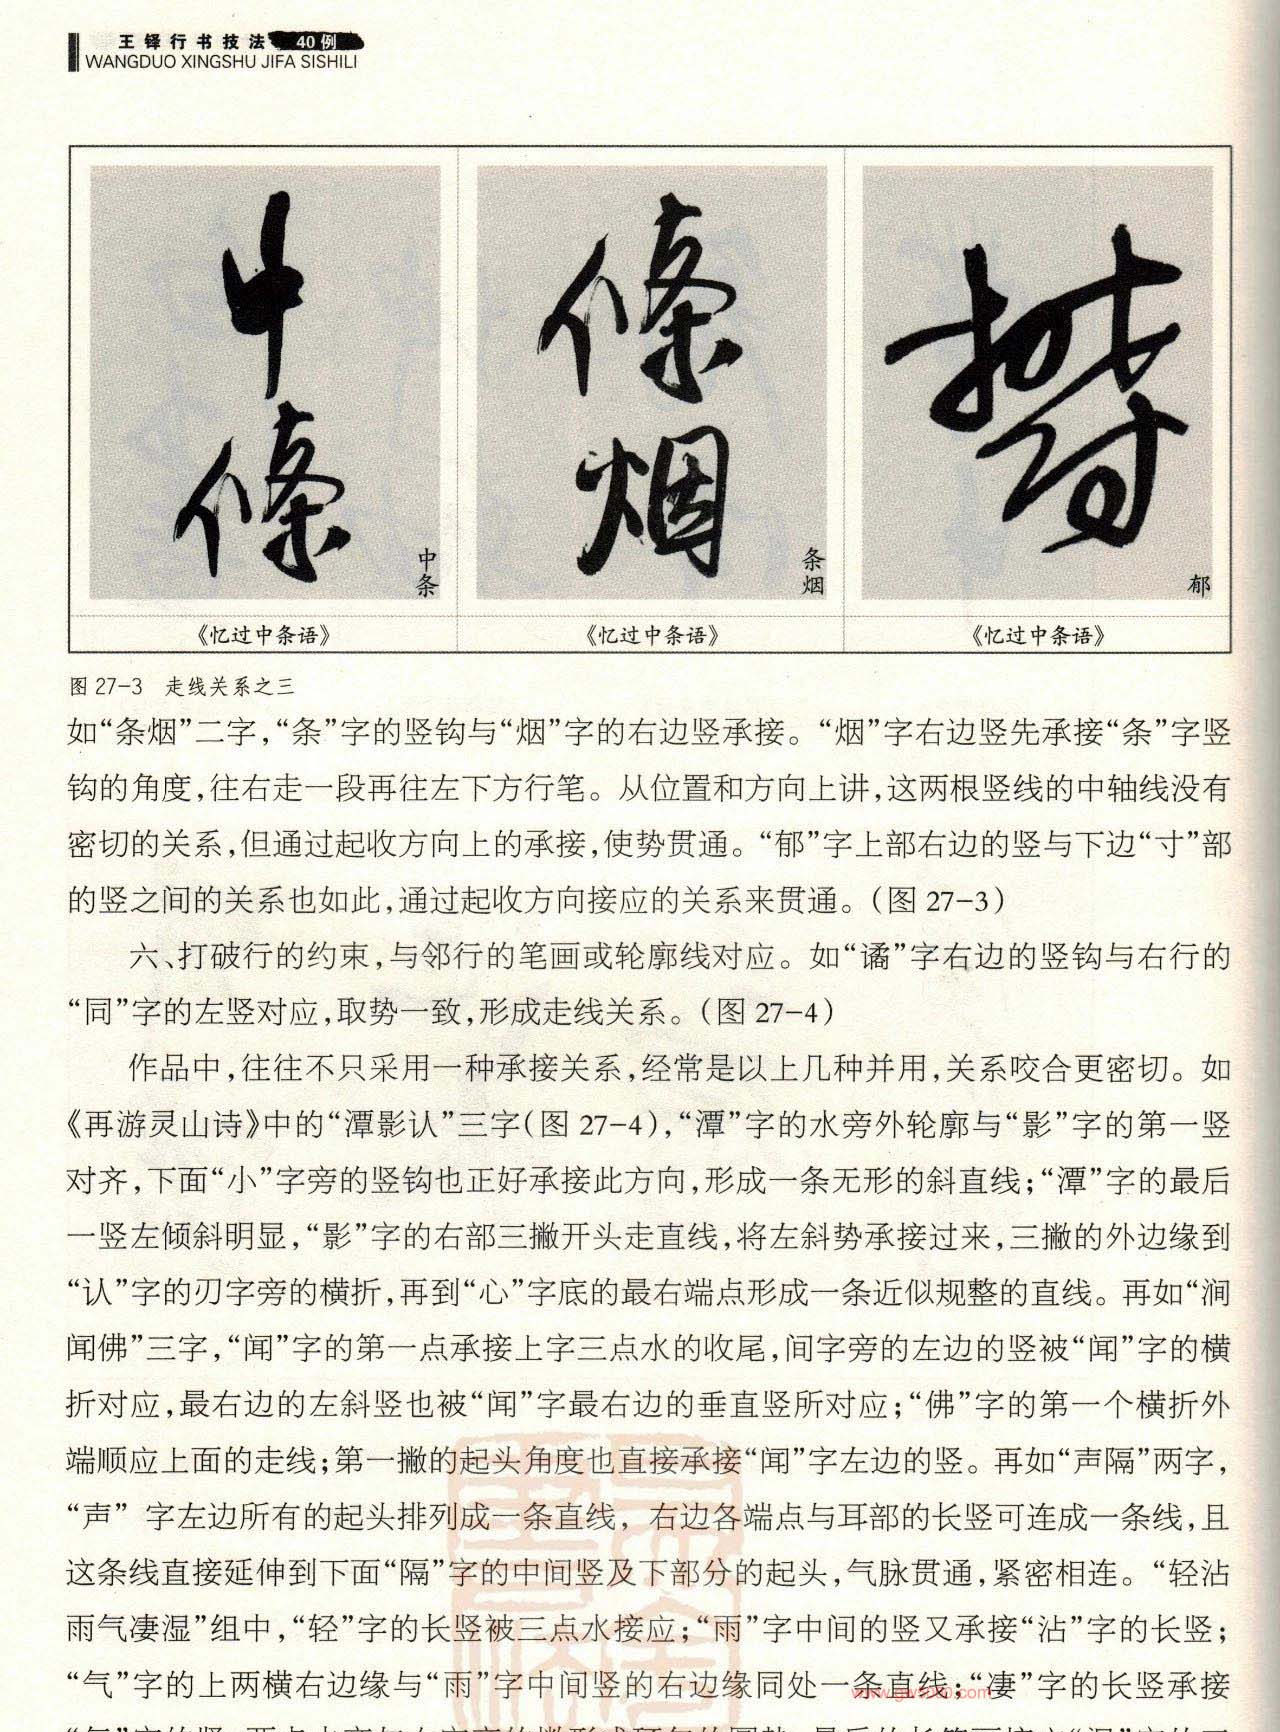 王铎行书技法 40例
WANGDUO XINGSHU JIFA SISHILI
中條
中条
《忆过中条语》
條烟
条烟
《忆过中条语》
郁
《忆过中条语》
图 27-3 走线关系之三
如“条烟”二字，“条”字的竖钩与“烟”字的右边竖承接。“烟”字右边竖先承接“条”字竖
钩的角度，往右走一段再往左下方行笔。从位置和方向上讲，这两根竖线的中轴线没有
密切的关系，但通过起收方向上的承接，使势贯通。“郁”字上部右边的竖与下边“寸”部
的竖之间的关系也如此，通过起收方向接应的关系来贯通。（图 27-3）
六、打破行的约束，与邻行的笔画或轮廓线对应。如“谲”字右边的竖钩与右行的
“同”字的左竖对应，取势一致，形成走线关系。（图 27-4）
作品中，往往不只采用一种承接关系，经常是以上几种并用，关系咬合更密切。如
《再游灵山诗》中的“潭影认”三字（图 27-4），“潭”字的水旁外轮廓与“影”字的第一竖
对齐，下面“小”字旁的竖钩也正好承接此方向，形成一条无形的斜直线；“潭”字的最后
一竖左倾斜明显，“影”字的右部三撇开头走直线，将左斜势承接过来，三撇的外边缘到
“认”字的刃字旁的横折，再到“心”字底的最右端点形成一条近似规整的直线。再如“涧
闻佛”三字，“闻”字的第一点承接上字三点水的收尾，间字旁的左边的竖被“闻”字的横
折对应，最右边的左斜竖也被“闻”字最右边的垂直竖所对应；“佛”字的第一个横折外
端顺应上面的走线；第一撇的起头角度也直接承接“闻”字左边的竖。再如“声隔”两字，
“声”字左边所有的起头排列成一条直线，右边各端点与耳部的长竖可连成一条线，且
这条线直接延伸到下面“隔”字的中间竖及下部分的起头，气脉贯通，紧密相连。“轻沾
雨气凄湿”组中，“轻”字的长竖被三点水接应；“雨”字中间的竖又承接“沾”字的长竖；
“气”字的上两横右边缘与“雨”字中间竖的右边缘同处一条直线；“凄”字的长竖承接